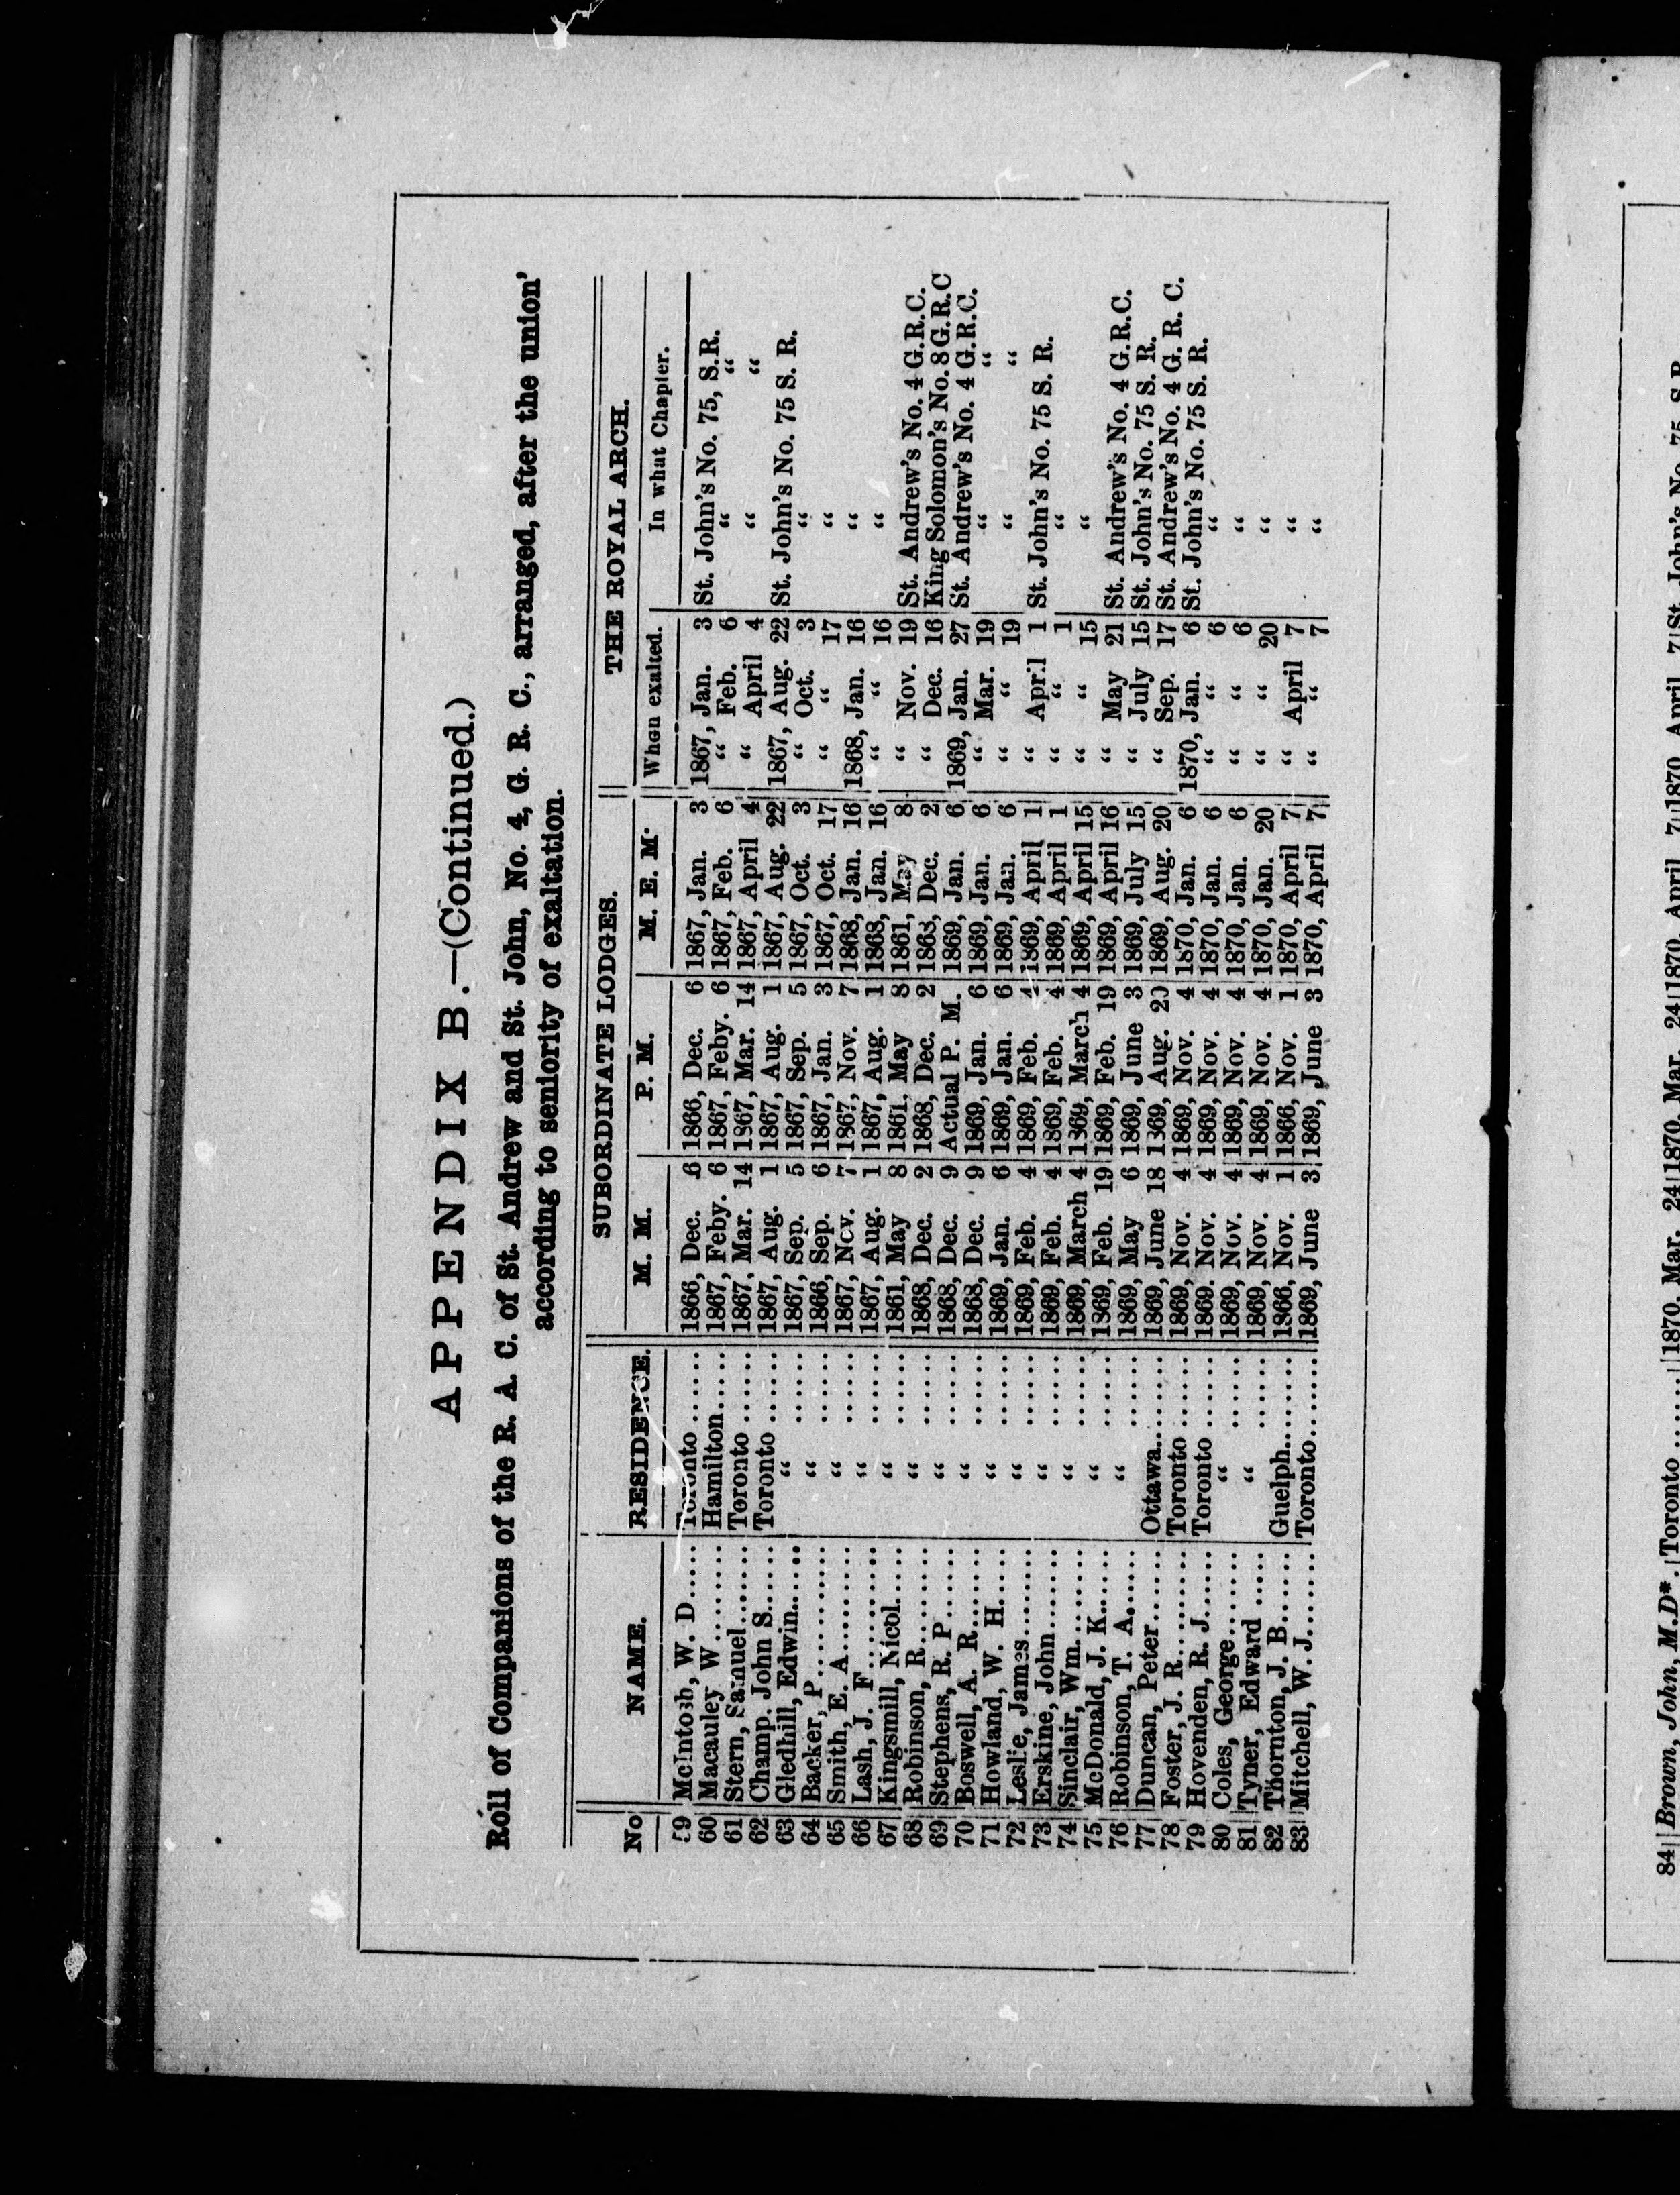 APPENDIX B.—(Continued.)
Roll of Companions of the R. A. C. of St. Andrew and St. John, No. 4, G. R. C., arranged, after the union'
according to seniority of exaltation.
SUBORDINATE LODGES. THE ROYAL ARCH.
No NAME. RESIDENCE. M. M. P. M. M. E. M. When exalted. In what Chapter.
59 McIntosh, W. D...... Toronto ...... 1866, Dec. 6 1866, Dec. 6 1867, Jan. 3 1867, Jan. 3 St. John's No. 75, S.R.
60 Macauley W........ Hamilton...... 1867, Feby. 6 1867, Feby. 6 1867, Feb. 6 “ Feb. 6 “ “
61 Stern, Samuel....... Toronto ...... 1867, Mar. 14 1867, Mar. 14 1867, April 4 “ April 4 “ “
62 Champ. John S...... Toronto ...... 1867, Aug. 1 1867, Aug. 1 1867, Aug. 22 1867, Aug. 22 St. John's No. 75 S. R.
63 Gledhill, Edwin...... “ ...... 1867, Sep. 5 1867, Sep. 5 1867, Oct. 3 “ Oct. 3 “
64 Backer, P........... “ ...... 1866, Sep. 6 1867, Jan. 3 1867, Oct. 17 “ “ 17 “
65 Smith, E. A......... “ ...... 1867, Nov. 7 1867, Nov. 7 1868, Jan. 16 1868, Jan. 16 “
66 Lash, J. F........... “ ...... 1867, Aug. 1 1867, Aug. 1 1868, Jan. 16 “ “ 16 “
67 Kingsmill, Nicol..... “ ...... 1861, May 8 1861, May 8 1861, May 8 “ Nov. 19 St. Andrew's No. 4 G.R.C.
68 Robinson, R......... “ ...... 1868, Dec. 2 1868, Dec. 2 1868, Dec. 2 “ Dec. 16 King Solomon's No. 8 G.R.C
69 Stephens, R. P....... “ ...... 1868, Dec. 9 Actual P. M. 1869, Jan. 6 1869, Jan. 27 St. Andrew's No. 4 G.R.C.
70 Boswell, A. R....... “ ...... 1868, Dec. 9 1869, Jan. 6 1869, Jan. 6 “ Mar. 19 “ “
71 Howland, W. H..... “ ...... 1869, Jan. 6 1869, Jan. 6 1869, Jan. 6 “ “ 19 “ “
72 Leslie, James........ “ ...... 1869, Feb. 4 1869, Feb. 4 1869, April 1 “ April 1 St. John's No. 75 S. R.
73 Erskine, John........ “ ...... 1869, Feb. 4 1869, Feb. 4 1869, April 1 “ “ 1 “
74 Sinclair, Wm........ “ ...... 1869, March 4 1869, March 4 1869, April 15 “ “ 15 “
75 McDonald, J. K...... “ ...... 1869, Feb. 19 1869, Feb. 19 1869, April 16 “ May 21 St. Andrew's No. 4 G.R.C.
76 Robinson, T. A...... “ ...... 1869, May 6 1869, June 3 1869, July 15 “ July 15 St. John's No. 75 S. R.
77 Duncan, Peter....... Ottawa........ 1869, June 18 1869, Aug. 20 1869, Aug. 20 “ Sep. 17 St. Andrew's No. 4 G. R. C.
78 Foster, J. R......... Toronto ...... 1869, Nov. 4 1869, Nov. 4 1870, Jan. 6 1870, Jan. 6 St. John's No. 75 S. R.
79 Hovenden, R. J...... Toronto ...... 1869. Nov. 4 1869, Nov. 4 1870, Jan. 6 “ “ 6 “
80 Coles, George....... “ ...... 1869, Nov. 4 1869, Nov. 4 1870, Jan. 6 “ “ 6 “
81 Tyner, Edward ..... “ ...... 1869, Nov. 4 1869, Nov. 4 1870, Jan. 20 “ “ 20 “
82 Thornton, J. B...... Guelph........ 1866, Nov. 1 1866, Nov. 1 1870, April 7 “ April 7 “
83 Mitchell, W. J....... Toronto....... 1869, June 3 1869, June 3 1870, April 7 “ “ 7 “
84 Brown, John, M.D*. Toronto ...... 1870, Mar. 24 1870, Mar. 24 1870, April 7 1870, April 7 St. John's No. 75, S.R.